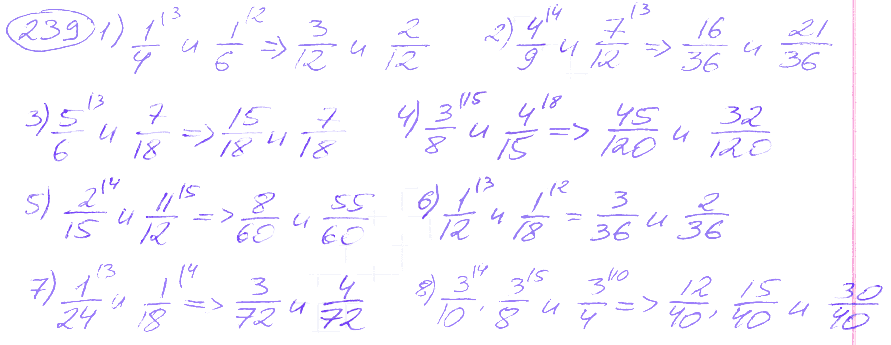 239 1) 1/4 \3 и 1/6 \2 => 3/12 и 2/12 2) 4/9 \4 и 7/12 \3 => 16/36 и 21/36
3) 5/6 \3 и 7/18 => 15/18 и 7/18 4) 3/8 \15 и 4/15 \8 => 45/120 и 32/120
5) 2/15 \4 и 11/12 \5 => 8/60 и 55/60 6) 1/12 \3 и 1/18 \2 = 3/36 и 2/36
7) 1/24 \3 и 1/18 \4 => 3/72 и 4/72 8) 3/10 \4, 3/8 \5 и 3/4 \10 => 12/40, 15/40 и 30/40